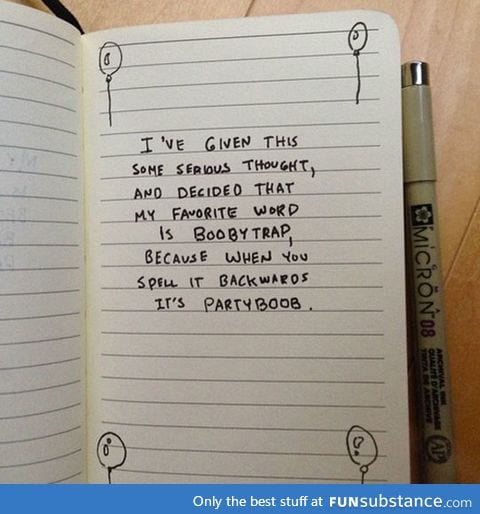 I'VE GIVEN THIS
SOME SERIOUS THOUGHT,
AND DECIDED THAT
MY FAVORITE WORD
IS BOOBYTRAP,
BECAUSE WHEN YOU
SPELL IT BACKWARDS
IT'S PARTYBOOB.
MICRON 08
ARCHIVAL INK
QUALITÉ D'ARCHIVAGE
TINTA DE ARCHIVE
AP
Only the best stuff at FUNsubstance.com